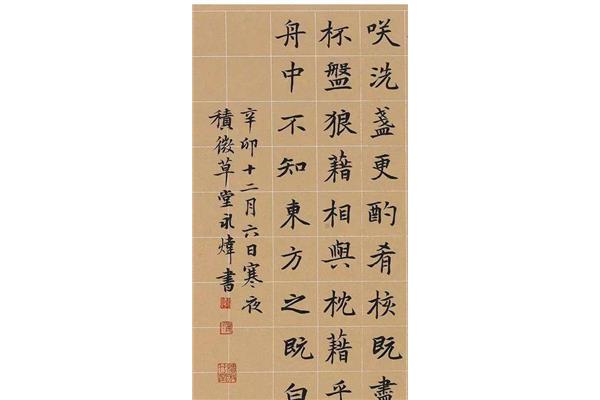 咲洗盞更酌肴核既盡
杯盤狼藉相與枕藉乎
舟中不知東方之既白
辛卯十二月六日寒夜
積微草堂永煒書